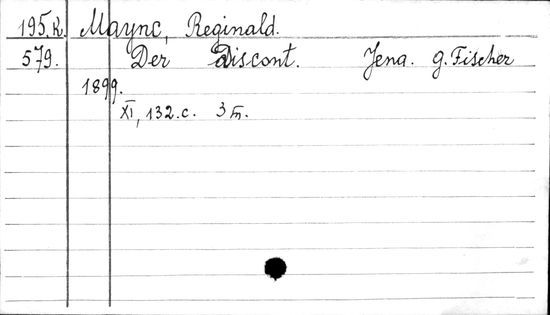 195.K. Maync, Reginald.
579. Der Discont. Jena. G. Fischer
1899.
XI, 132.c.